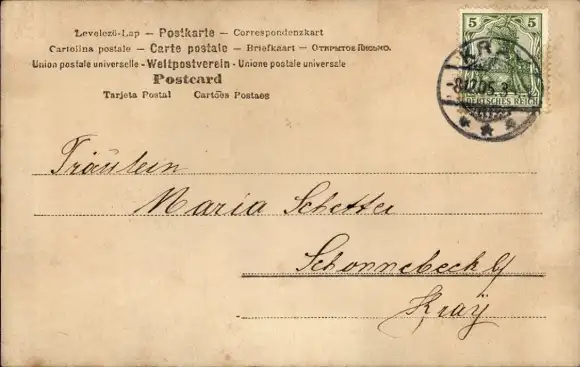 Levelező-Lap — Postkarte — Correspondenzkart
Cartolina postale — Carte postale — Briefkaart — Открытое Письмо.
Union postale universelle - Weltpostverein - Unione postale universale
Postcard
Tarjeta Postal Cartões Postaes
5 5
KRAY
-8.12.05.3
DEUTSCHES REICH
Fräulein
Maria Schetter
Schonnebeck
Kraÿ